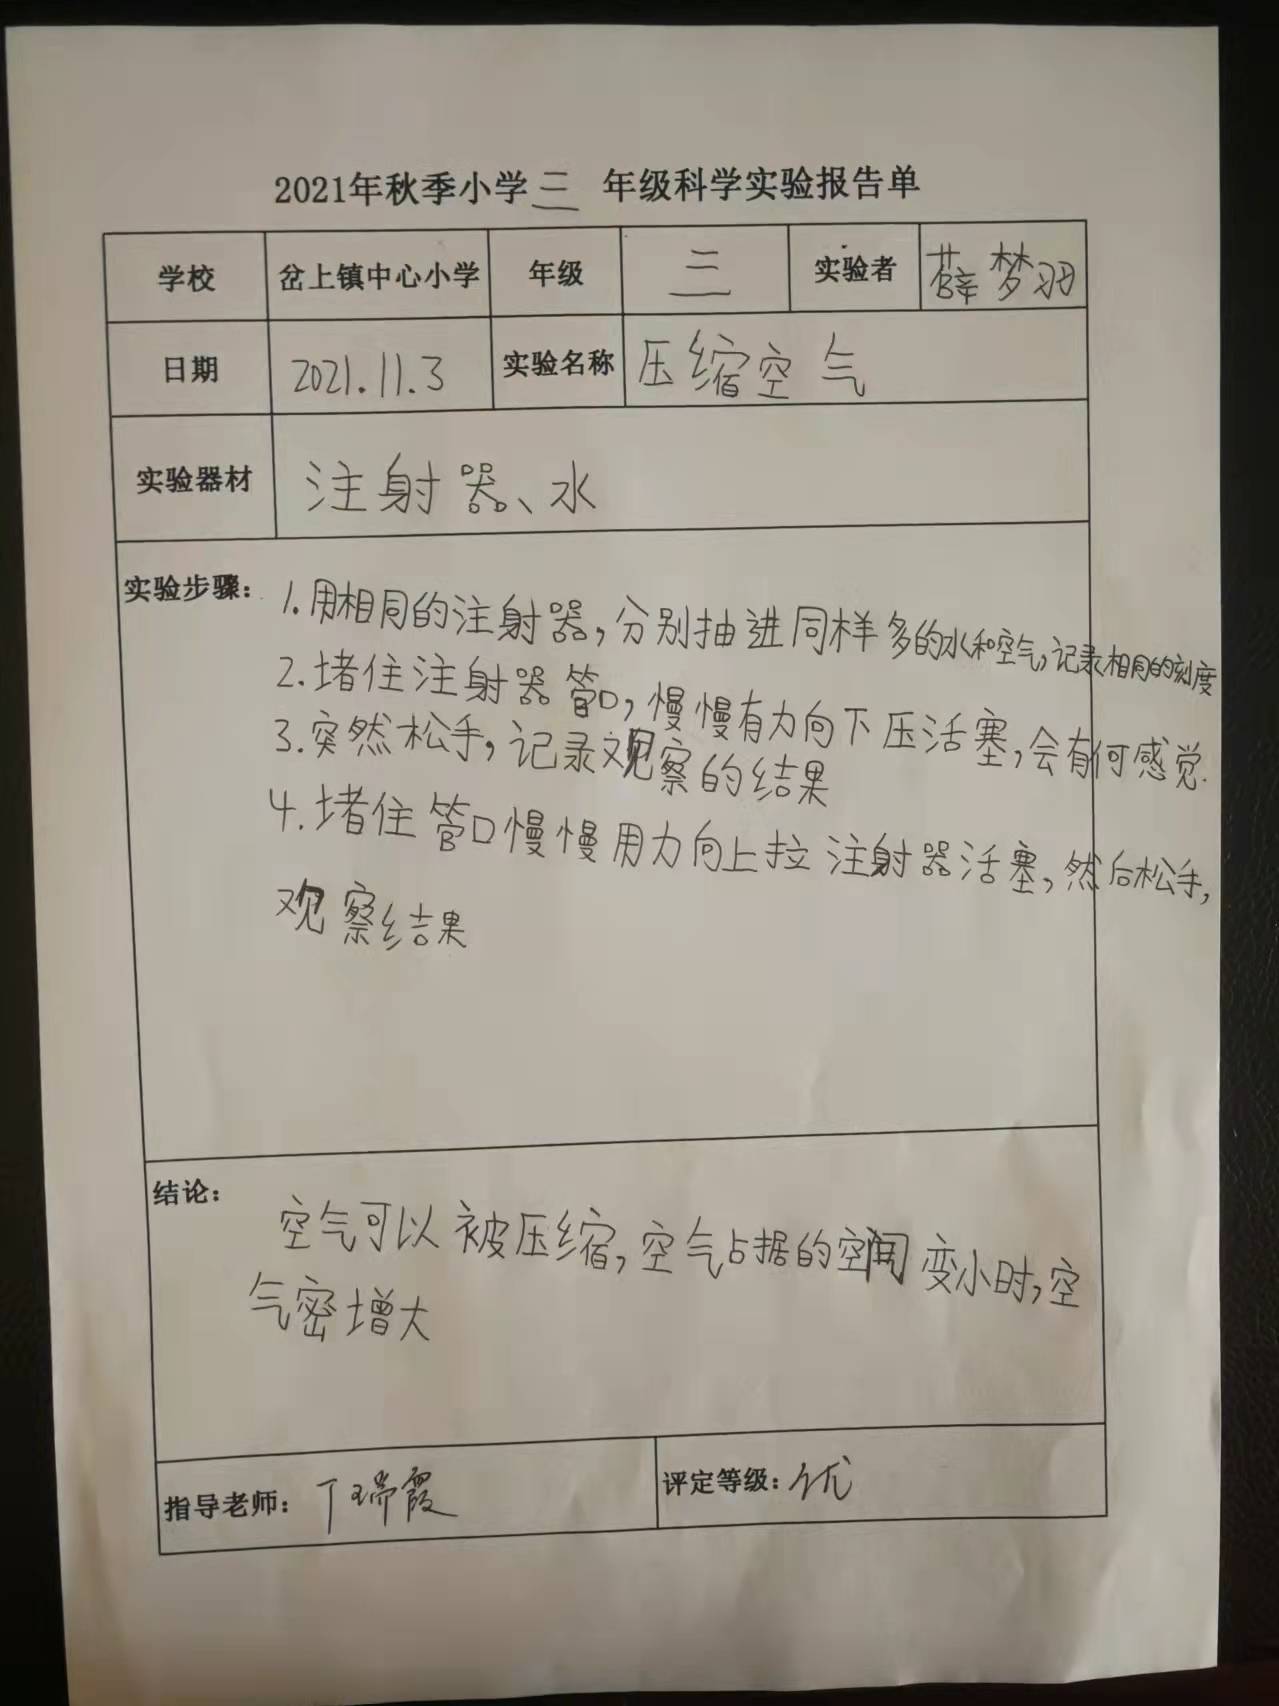 2021年秋季小学三 年级科学实验报告单
学校 岔上镇中心小学 年级 三 实验者 薛梦羽
日期 2021.11.3 实验名称 压缩空气
实验器材 注射器、水
实验步骤：1.用相同的注射器,分别抽进同样多的水和空气,记录相同的刻度
2.堵住注射器管口,慢慢有力向下压活塞,会有何感觉.
3.突然松手,记录观察的结果
4.堵住管口慢慢用力向上拉注射器活塞,然后松手,
观察结果
结论：
空气可以被压缩,空气占据的空间变小时,空
气密增大
指导老师：丁瑞霞 评定等级：优